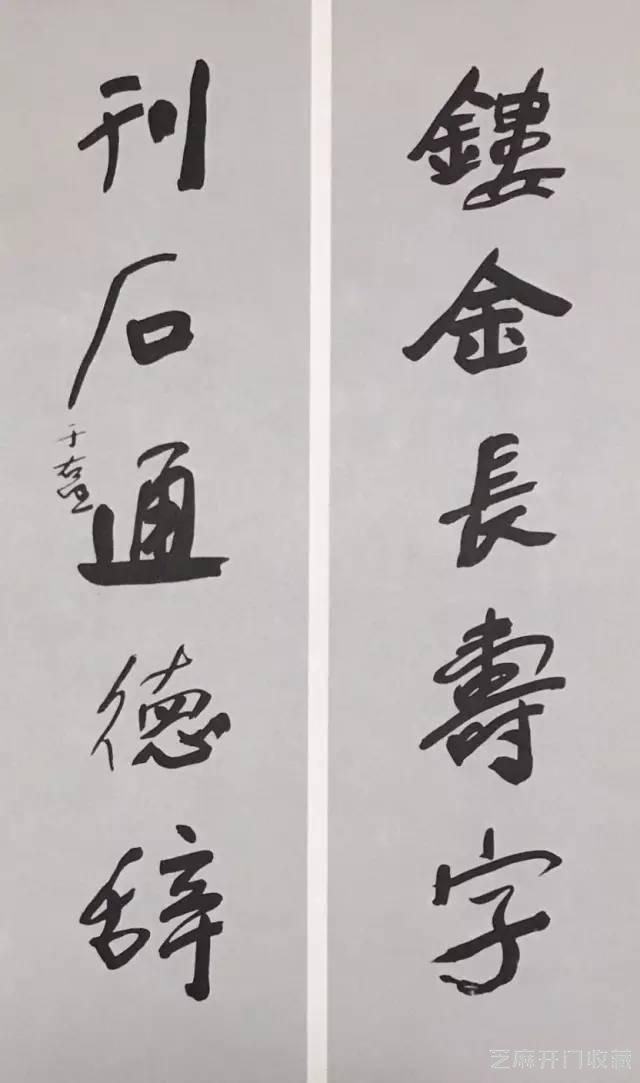 鏤金長壽字
刊石通德辞
于右任
芝麻开门收藏